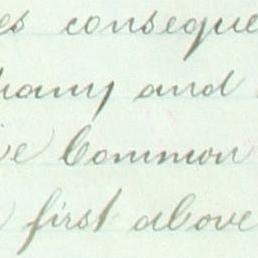 es conseque
pany and
e Common
first above